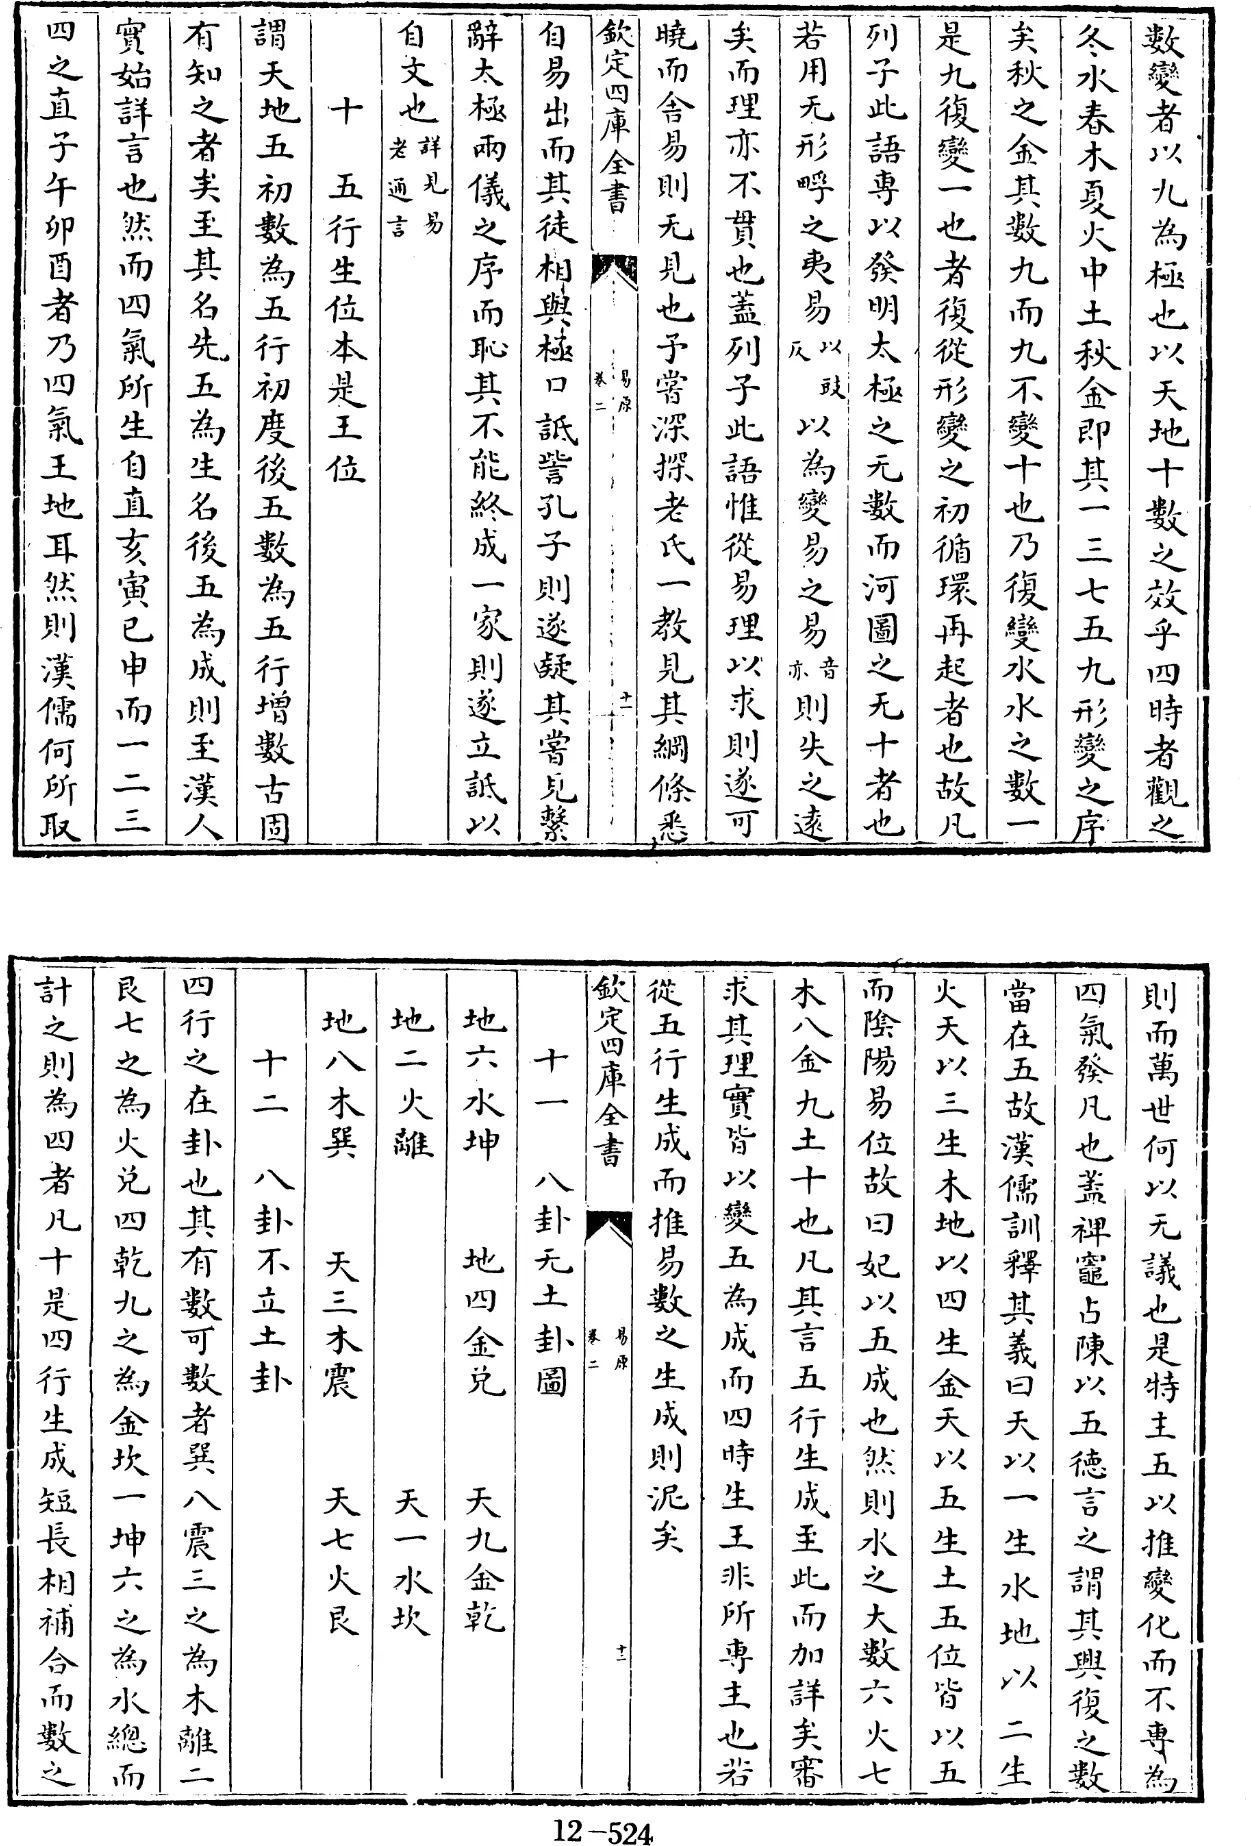 數變者以九為極也以天地十數之效乎四時者觀之
冬水春木夏火中土秋金即其一三七五九形變之序
矣秋之金其數九而九不變十也乃復變水水之數一
是九復變一也者復從形變之初循環再起者也故凡
列子此語専以發明太極之无數而河圖之无十者也
若用无形㖸之夷易以豉反以為變易之易音亦則失之逺
矣而理亦不貫也蓋列子此語惟從易理以求則遂可
曉而舎易則无見也予嘗深探老氏一教見其綱條悉
欽定四庫全書
易原
卷二
十一
自易出而其徒相與極口詆訾孔子則遂疑其嘗見繫
辭太極兩儀之序而恥其不能終成一家則遂立詆以
自文也詳見易老通言
十　五行生位本是王位
謂天地五初數為五行初度後五數為五行增數古固
有知之者矣至其名先五為生名後五為成則至漢人
實始詳言也然而四氣所生自直亥寅巳申而一二三
四之直子午卯酉者乃四氣王地耳然則漢儒何所取
則而萬世何以无議也是特主五以推變化而不専為
四氣發凡也蓋禆竈占陳以五徳言之謂其興復之數
當在五故漢儒訓釋其義曰天以一生水地以二生
火天以三生木地以四生金天以五生土五位皆以五
而陰陽易位故曰妃以五成也然則水之大數六火七
木八金九土十也凡其言五行生成至此而加詳矣審
求其理實皆以變五為成而四時生王非所専主也若
從五行生成而推易數之生成則泥矣
欽定四庫全書
易原
卷二
十二
十一　八卦无土卦圖
地六水坤　地四金兌　天九金乾
地二火離　天一水坎
地八木巽　天三木震　天七火艮
十二　八卦不立土卦
四行之在卦也其有數可數者巽八震三之為木離二
艮七之為火兌四乾九之為金坎一坤六之為水總而
計之則為四者凡十是四行生成短長相補合而數之
12-524